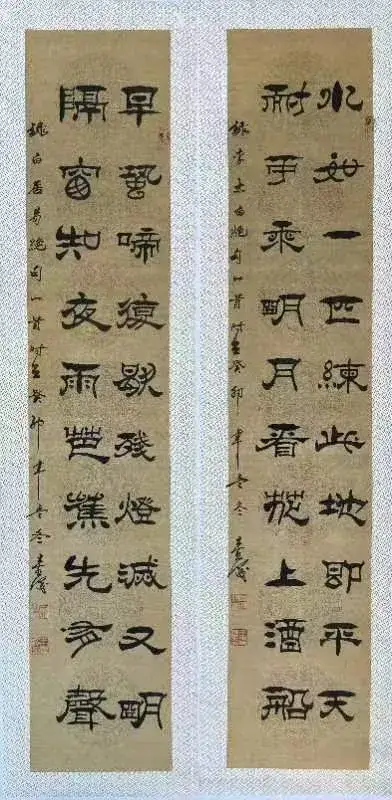 水如一匹練此地即平天
耐乘明月看花上酒船
錄李太白絕句一首時在癸卯年之冬
早蛩啼復歇殘燈滅又明
隔窗知夜雨芭蕉先有聲
錄白居易絕句一首時在癸卯年之冬